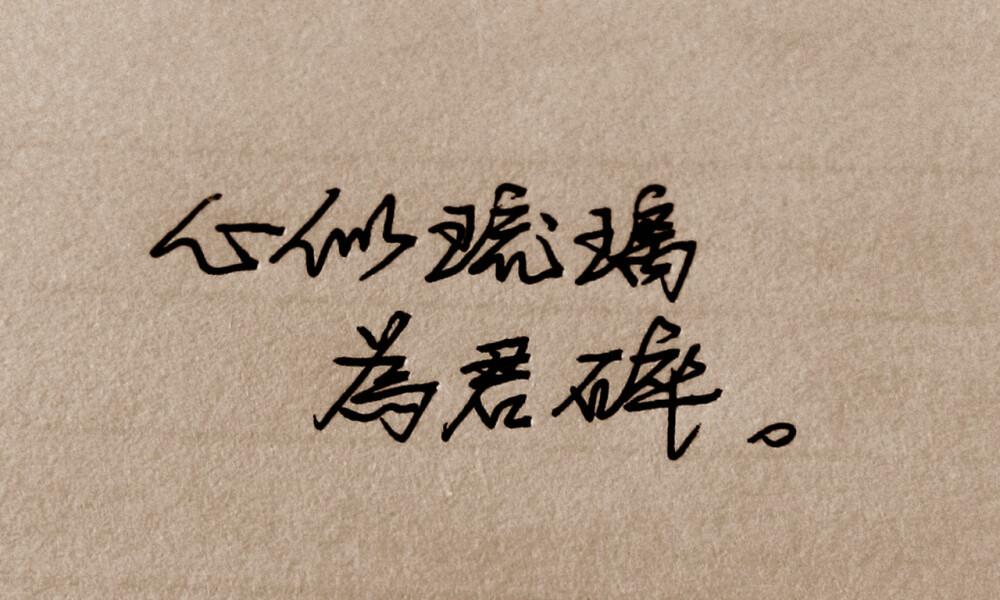 心似琉璃
為君碎。